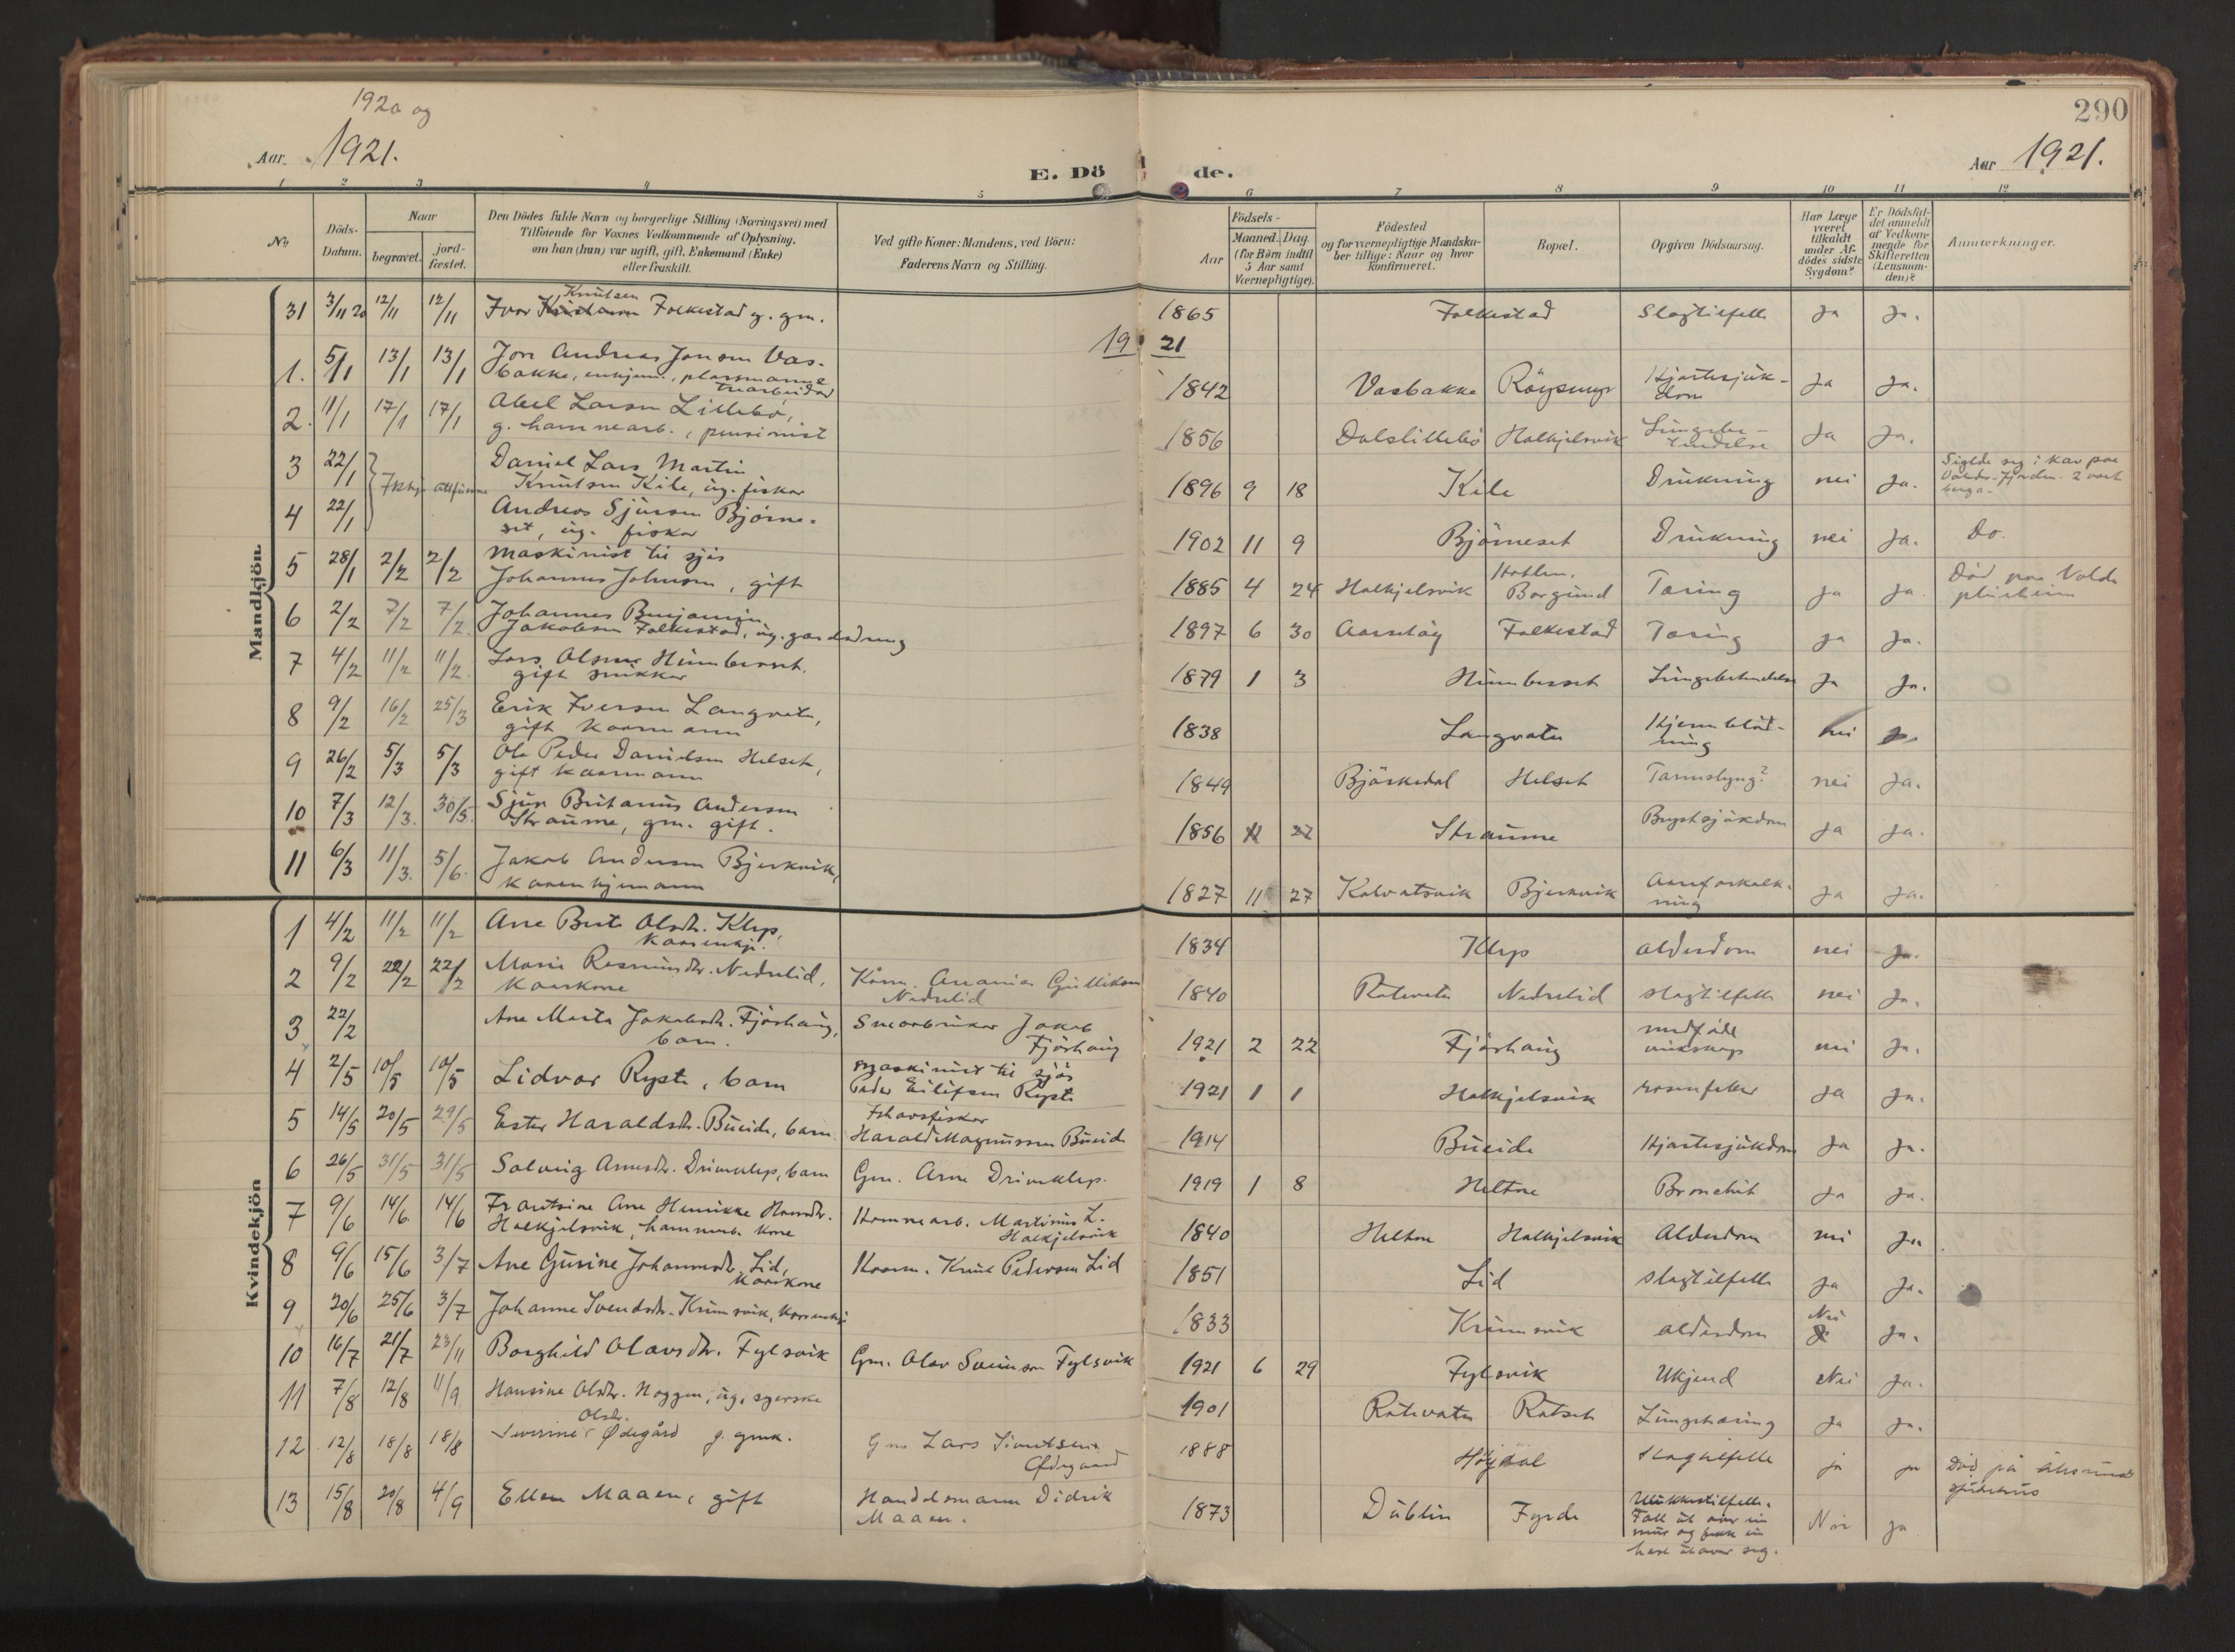 1920 og
290
Aar 1921.
E. Döde.
Aar 1921.
1 2 3 4 5 6 7 8 9 10 11 12
No
Döds-Datum.
Naar
begravet.
jord-fæstet.
Den Dödes fulde Navn og borgerlige Stilling (Næringsvei) med
Tilföiende for Voxnes Vedkommende af Oplysning,
om han (hun) var ugift, gift, Enkemand (Enke)
eller fraskilt.
Ved gifte Koner: Mandens, ved Börn:
Faderens Navn og Stilling.
Födsels-
Aar
Maaned. Dag.
(for Börn indtil
5 Aar samt
Værnepligtige).
Födested
og for værnepligtige Mandska-
ber tillige: Naar og hvor
konfirmeret.
Bopæl.
Opgiven Dödsaarsag.
Har Læge
været
tilkaldt
under Af-
dödes sidste
Sygdom?
Er Dödsfal-
det anmeldt
af Vedkom-
mende for
Skifteretten
(Lensman-
den)?
Anmærkninger.
Mandkjön.
31 3/11 20 12/11 12/11 Ivar Knutsen Folkestad g. gm. 1865 Folkestad Slagtilfelle Ja Ja.
1921
1. 5/1 13/1 13/1 Jon Andreas Jonsen Vas-
bakke, enkjem., plassmann
trearbeidar 1842 Vasbakke Röysmyr Hjartesjuk-
dom Ja Ja.
2. 11/1 17/1 17/1 Abel Larsen Lillebö,
g. hamnearb., pensionist 1856 Dalslillebö Halkjelsvik Ja Ja.
3 22/1 Daniel Lars Martin
Knutsen Kile, ug. fiskar 1896 9 18 Kile Drukning nei Ja. Siglde seg i kav paa
Volds-fjorden. 2 vart
berga.
4 22/1 Andreas Sjursen Bjørne-
set, ug. fiskar 1902 11 9 Bjørneset Drukning nei Ja. Do.
5 28/1 2/2 2/2 Maskinist til sjøs
Johannes Johnsen, gift 1885 4 24 Halkjelsvik Borgund Tæring Ja Ja Död paa Volda
pleieheim
6 2/2 7/2 7/2 Johannes Benjamin
Jakobsen Folkestad, ug. gardsdreng 1897 6 30 Aarseløy Folkestad Tæring Ja Ja.
7 4/2 11/2 11/2 Lars Olsen Humberset
gift snikkar 1879 1 3 Humberset Lungebetendelse Ja Ja.
8 9/2 16/2 25/3 Erik Iversen Langvatn,
gift kaarmann 1838 Langvatn Hjerneblöd-
ning nei
9 26/2 5/3 5/3 Ole Peder Danielsen Helset,
gift kaarmann 1849 Björkedal Helset Tarmslyng? nei Ja.
10 7/3 12/3. 30/5. Sjur Britanus Andersen
Straume, gm. gift. 1856 Straume Brystsjukdom Ja Ja.
11 6/3 11/3. 5/6. Jakob Andersen Bjerkvik,
kaarenkjemann 1827 11 27 Kalvatsvik Bjerkvik Aareforkalk-
ning Ja Ja.
Kvindekjön
1 4/2 11/2 11/2 Ane Berte Olsdtr. Klep,
kaarenkje. 1834 Klep Alderdom nei Ja.
2 9/2 22/2 22/2 Marie Rasmusdtr. Nedrelid,
kaarkone Kårm. Ananias Gulliksen
Nedrelid 1840 Rotevatn Nedrelid slagtilfelle nei Ja.
3 22/2 Ane Marta Jakobsdtr. Fjörhaug,
barn. Smaabrukar Jakob
Fjörhaug 1921 2 22 Fjörhaug nei Ja.
4 2/5 10/5 10/5 Lidvor Ryste, barn Maskinist til sjøs
Peder Eilifsen Ryste 1921 1 1 Halkjelsvik rosenfeber Ja Ja.
5 14/5 20/5 29/5 Ester Haraldsdtr. Bueide, barn. Ishavsfiskar
Harald Magnussen Bueide 1914 Bueide Hjartesjukdom Ja Ja.
6 26/5 31/5 31/5 Solveig Arnesdtr. Driveklep, barn Gm. Arne Driveklep. 1919 1 8 Heltne Bronchit Ja Ja.
7 9/6 14/6 14/6 Frantsine Ane Henrikke Hansdtr.
Halkjelsvik, hamnearb. kone Hamnearb. Martinus L.
Halkjelsvik 1840 Heltne Halkjelsvik Alderdom nei Ja
8 9/6 15/6 3/7 Ane Gurine Johannesdtr. Lid,
kaarkone Kaarm. Knut Pedersen Lid 1851 Lid slagtilfelle Ja Ja.
9 20/6 25/6 3/7 Johanne Svendsdtr. Krumsvik, kaarenkje 1833 Krumsvik alderdom Nei Ja.
10 16/7 21/7 23/11 Borghild Olavsdtr. Fylsvik Gm. Olav Sveinson Fylsvik 1921 6 29 Fylsvik Ukjend Nei Ja.
11 7/8 12/8 11/9 Hansine Olsdtr. Noggen, ug, syerske 1901 Rotevatn Rotset Lungetæring Ja Ja.
12 12/8 18/8 18/8 Severine Olsdtr. Ødegård g. gmk. Gm Lars Sivertsen
Ødegaard 1888 Höydal Slagtilfelle ja ja Död på Ålesund
sjukehus
13 15/8 20/8 4/9 Ellen Maaen, gift Handelsmann Didrik
Maaen. 1873 Dublin Fyrde Ulukkestilfelle.
Fall ut over ein
mur og fekk ein
hest utover seg. Nei ja